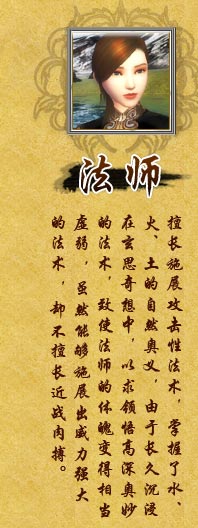 法师
擅长施展攻击性法术，掌握了水、
火、土的自然奥义，由于长久沉浸
在玄思奇想中，以求领悟高深奥妙
的法术，致使法师的体魄变得相当
虚弱，虽然能够施展出威力强大
的法术，却不擅长近战肉搏。